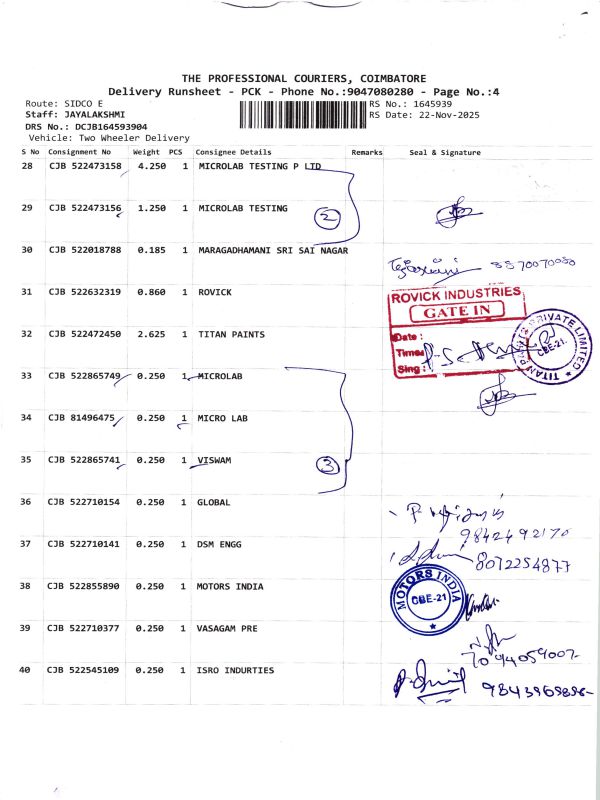 THE PROFESSIONAL COURIERS, COIMBATORE
Delivery Runsheet - PCK - Phone No.:9047080280 - Page No.:4
Route: SIDCO E
RS No.: 1645939
Staff: JAYALAKSHMI
RS Date: 22-Nov-2025
DRS No.: DCJB164593904
Vehicle: Two Wheeler Delivery
S No Consignment No Weight PCS Consignee Details Remarks Seal & Signature
28 CJB 522473158 4.250 1 MICROLAB TESTING P LTD
29 CJB 522473156 1.250 1 MICROLAB TESTING
2
30 CJB 522018788 0.185 1 MARAGADHAMANI SRI SAI NAGAR
31 CJB 522632319 0.860 1 ROVICK
ROVICK INDUSTRIES
GATE IN
Date:
Time:
Sing:
32 CJB 522472450 2.625 1 TITAN PAINTS
TITAN PAINTS PRIVATE LIMITED
CBE-21.
33 CJB 522865749 0.250 1 MICROLAB
34 CJB 81496475 0.250 1 MICRO LAB
35 CJB 522865741 0.250 1 VISWAM
3
36 CJB 522710154 0.250 1 GLOBAL
9842492170
37 CJB 522710141 0.250 1 DSM ENGG
8072254877
38 CJB 522855890 0.250 1 MOTORS INDIA
MOTORS INDIA
CBE-21
39 CJB 522710377 0.250 1 VASAGAM PRE
7094059007-
40 CJB 522545109 0.250 1 ISRO INDURTIES